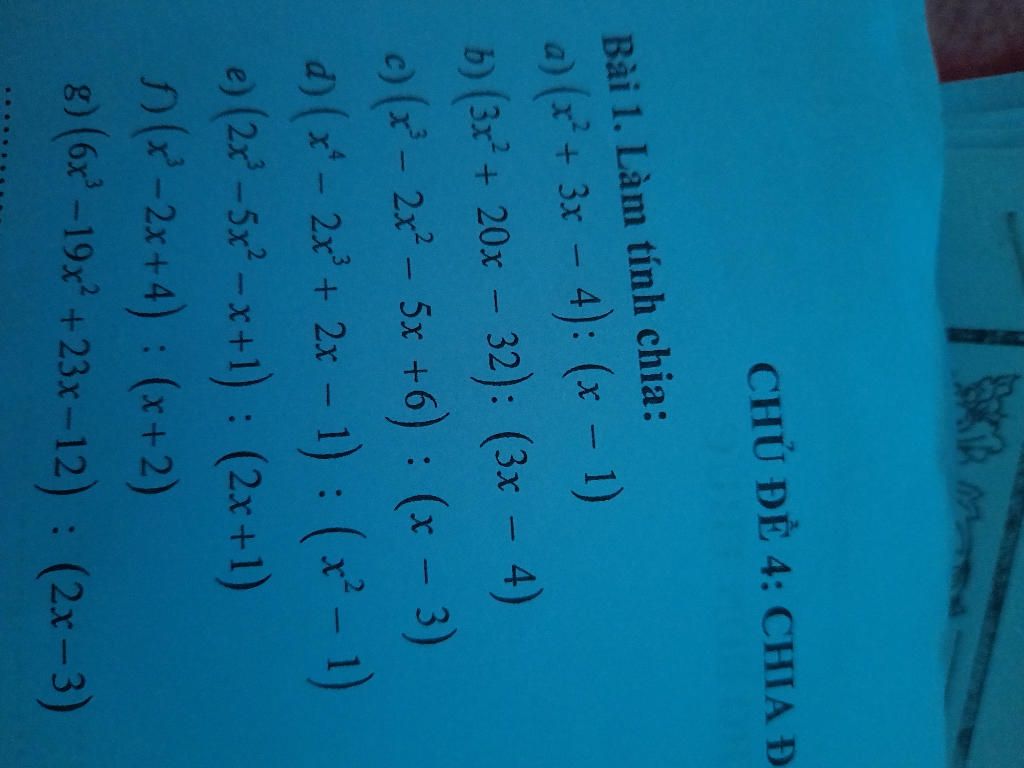 CHỦ ĐỀ 4: CHIA Đ
Bài 1. Làm tính chia:
a) (x² + 3x − 4): (x − 1)
b) (3x² + 20x − 32): (3x − 4)
c) (x³ − 2x² − 5x +6) : (x − 3)
d) (x⁴ − 2x³ + 2x − 1) : (x² − 1)
e) (2x³ −5x² −x+1) : (2x+1)
f) (x³ −2x+4) : (x+2)
g) (6x³ −19x² +23x−12) : (2x−3)